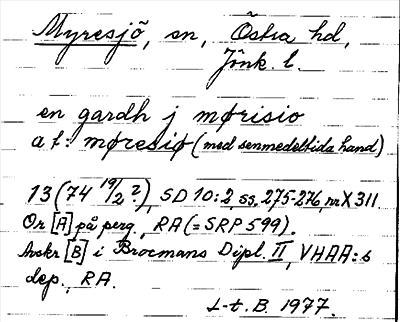 Myresjö, sn, Östra hd,
Jönk. l.
en gardh j mørisio
a t: møresiø (med senmedeltida hand)
13(74 19/2 ?), SD 10:2, ss. 275-276, nr X 311.
Or [A] på perg., RA (= SRP 599).
Avskr [B] i Brocmans Dipl. II, VHAA:s
dep., RA.
L-t. B. 1977.